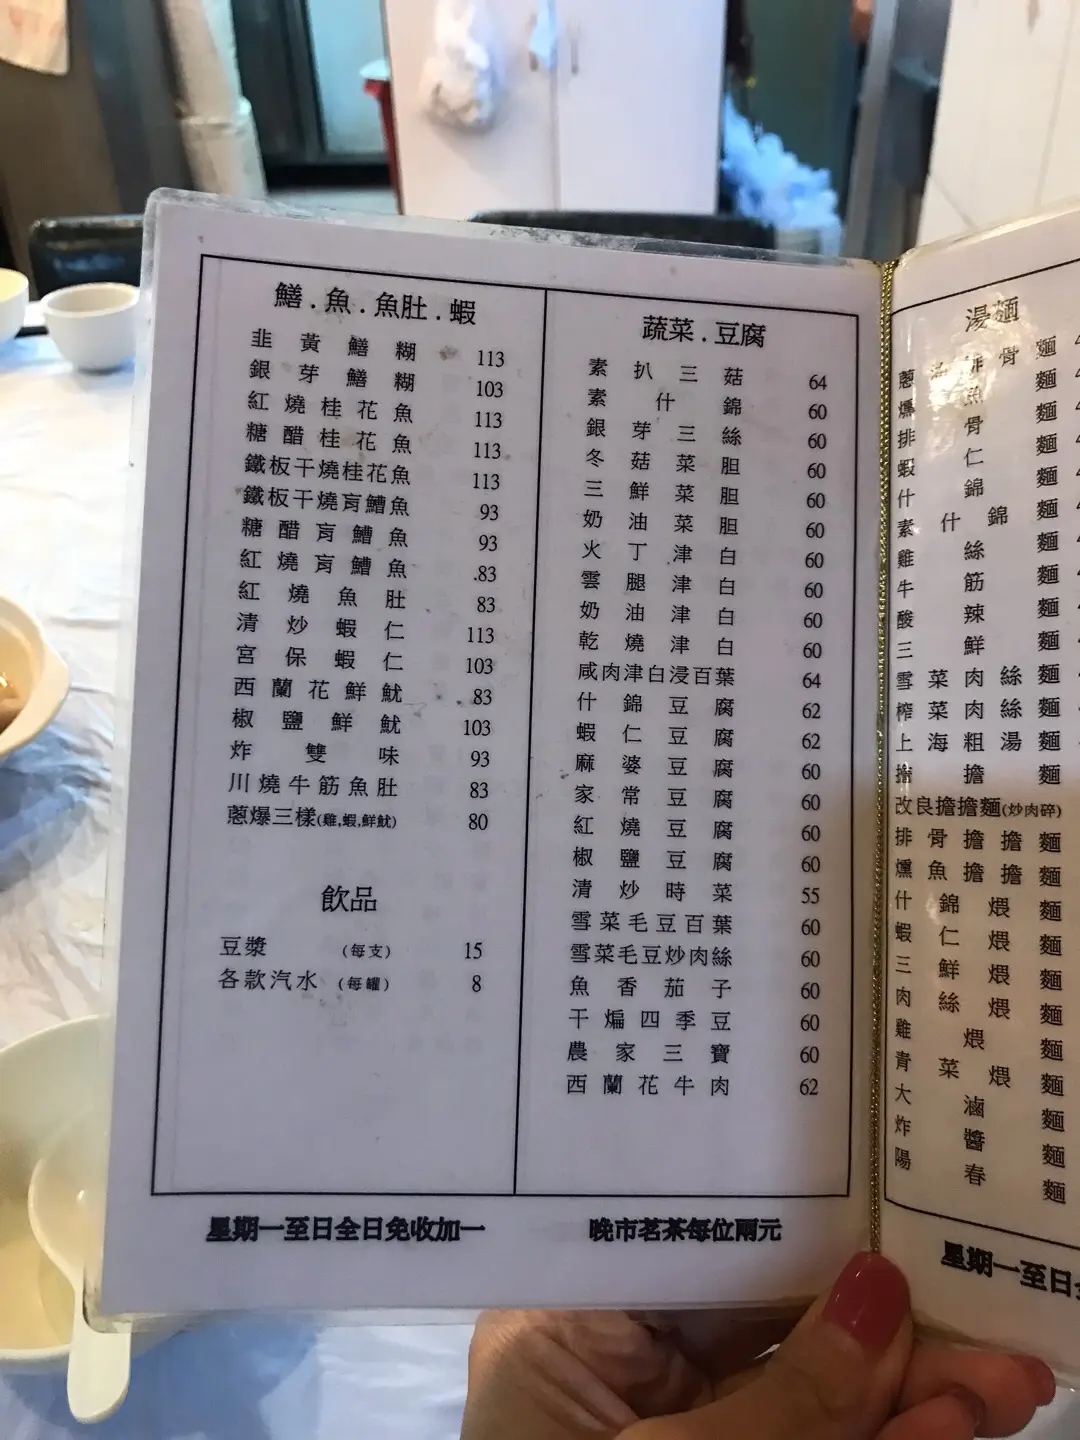 鱔．魚．魚肚．蝦
韭黃鱔糊 113
銀芽鱔糊 103
紅燒桂花魚 113
糖醋桂花魚 113
鐵板干燒桂花魚 113
鐵板干燒肓鰽魚 93
糖醋肓鰽魚 93
紅燒肓鰽魚 .83
紅燒魚肚 83
清炒蝦仁 113
宮保蝦仁 103
西蘭花鮮魷 83
椒鹽鮮魷 103
炸雙味 93
川燒牛筋魚肚 83
蔥爆三樣(雞,蝦,鮮魷) 80
飲品
豆漿 (每支) 15
各款汽水 (每罐) 8
蔬菜．豆腐
素扒三菇 64
素什錦 60
銀芽三絲 60
冬菇菜胆 60
三鮮菜胆 60
奶油菜胆 60
火丁津白 60
雲腿津白 60
奶油津白 60
乾燒津白 60
咸肉津白浸百葉 64
什錦豆腐 62
蝦仁豆腐 62
麻婆豆腐 60
家常豆腐 60
紅燒豆腐 60
椒鹽豆腐 60
清炒時菜 55
雪菜毛豆百葉 60
雪菜毛豆炒肉絲 60
魚香茄子 60
干煸四季豆 60
農家三寶 60
西蘭花牛肉 62
星期一至日全日免收加一
晚市茗茶每位兩元
湯麵
排骨麵
燻魚麵
排骨麵
蝦仁麵
什錦麵
素什錦麵
雞絲麵
牛筋麵
酸辣麵
三鮮麵
雪菜肉絲麵
榨菜肉絲麵
上海粗湯麵
擔擔麵
改良擔擔麵(炒肉碎)
排骨擔擔麵
燻魚擔擔麵
什錦煨麵
蝦仁煨麵
三鮮煨麵
肉絲煨麵
雞煨麵
青菜煨麵
大滷麵
炸醬麵
陽春麵
星期一至日